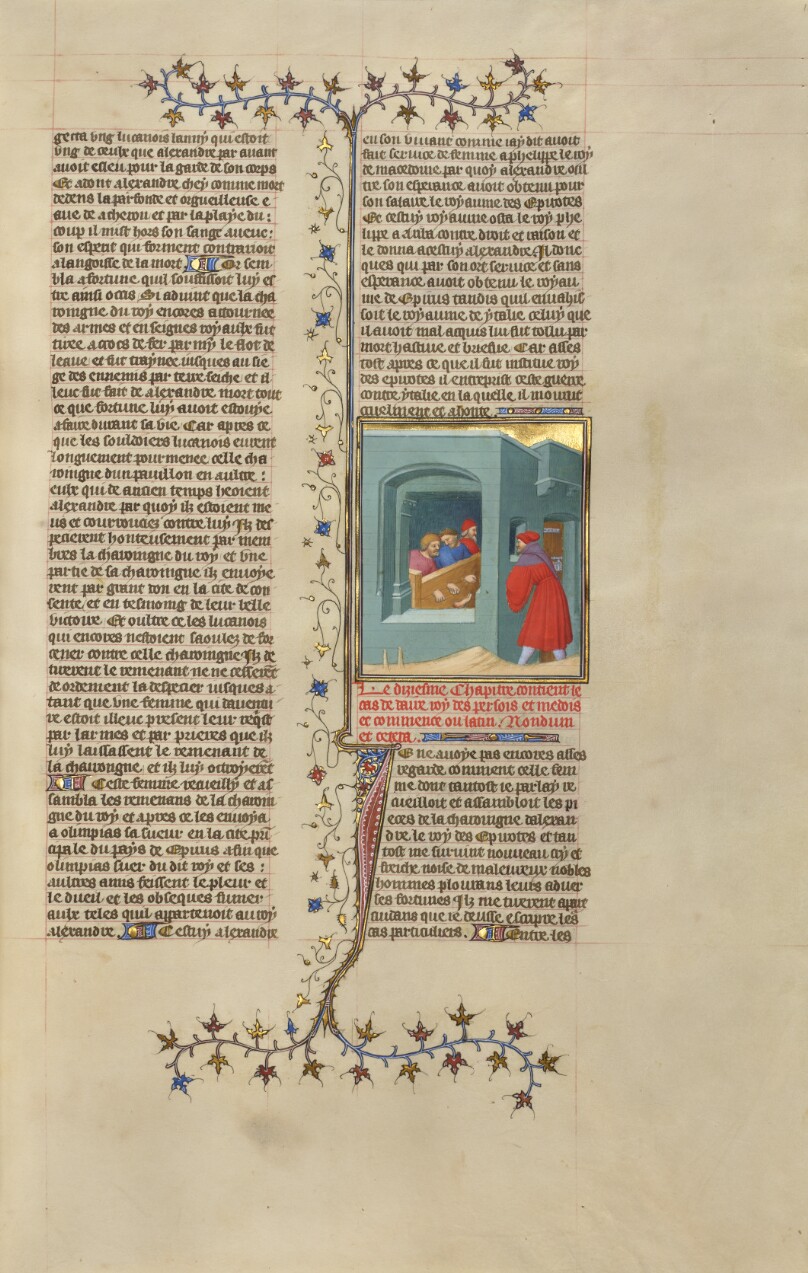 gecta ung lucanois banny qui estoit
ung de ceulx que alexandre par avant
avoit esleu pour la garde de son corps
Et adont alexandre chey comme mort
dedens la parfonde et orgueilleuse e
aue de acheron et par la playe du
coup il mist hors son sang avec
son esperit qui forment contrarioit
a langoisse de la mort Or sem
bla a fortune quil souffisoit luy es
tre ainsi occis Si advint que la cha
roingne du roy encores attournee
des armes et enseignes royaulx fut
tiree a crocs de fer parmy le flot de
leaue et fut traynee iusques au sie
ge des ennemis par terre seiche et il
leuc fut fait de alexandre mort tout
ce que fortune luy avoit
a faire durant sa vie Car apres ce
que les souldiers lucanois eurent
longuement pourmenee celle cha
roingne dun pavillon en aultre
eulx qui de ancien temps heoient
alexandre par quoy ilz estoient me
us et courroucez contre luy Ilz des
pecierent honteusement par mem
bres la charoingne du roy et une
partie de sa charoingne ilz envoye
rent par grant don en la cite de con
sente et en tesmoing de leur belle
victoire Et oultre ce les lucanois
qui encores nestoient saoulez de for
cener contre celle charoingne Ilz de
tirerent le remenant ne ne cesserent
de ordement la despecier iusques a
tant que une femme qui daventu
re estoit illeuc present leur requist
par larmes et par prieres que ilz
luy laissassent le remenant de
la charoingne et ilz luy octroyerent
Ceste femme recueilly et as
sambla les remenans de la charoin
gne du roy et apres ce les envoya
a olimpias sa sueur en la cite prin
cipale du pays de Epirus afin que
olimpias suer du dit roy et ses
aultres amis feissent le pleur et
le dueil et les obseques funer
aulx teles quil appartenoit au roy
alexandre Cestuy alexandre
en son vivant comme iay dit avoit
fait service de femme a phelippe le roy
de macedoine par quoy alexandre oul
tre son esperance avoit obtenu pour
son salaire le royaume des Epirotes
Et cestuy royaume osta le roy phe
lippe a contre droit et raison et
le donna a cestuy alexandre Il donc
ques qui par son ort service et sans
esperance avoit obtenu le royau
me de Epirus tandis quil envahis
soit le royaume de ytalie celuy que
il avoit mal acquis luy fut tollu par
mort hastive et briefve Car asses
tost apres ce que il fut institue roy
des epirotes il entreprist ceste guerre
contre ytalie en la quelle il mourut
cruelment et a honte
Le diziesme Chapitre contient le
cas de daire roy des persois et medois
et commence ou latin Nondum
et cetera
Ie ne avoye pas encores asses
regarde comment celle fem
me dont tantost ie parlay re
cueilloit et assambloit les pi
eces de la charoingne dalexan
dre le roy des Epirotes et tan
tost me survint nouveau cry et
freiche noise de maleureux nobles
hommes plourans leurs adver
ses fortunes Ilz me tirerent apart
cuidans que ie deusse escripre les
cas particuliers Entre les